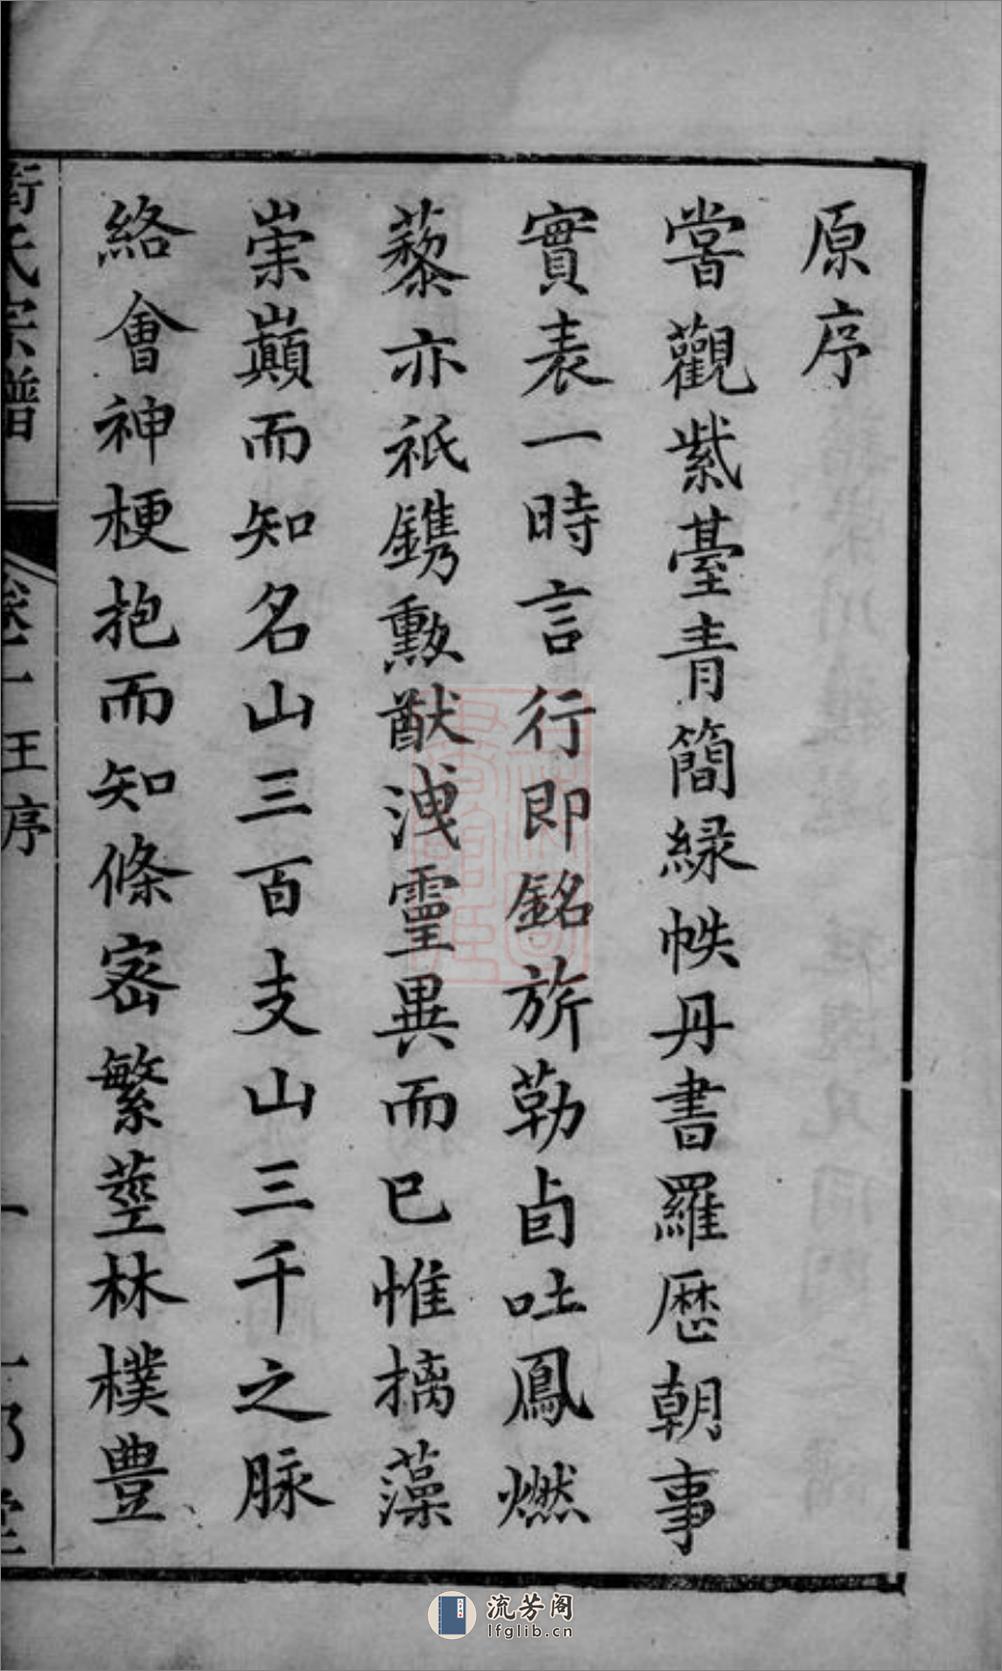 原序
嘗觀紫臺青簡緑帙丹書羅歴朝事
實表一時言行即銘旂勒卣吐鳳燃
藜亦祇鐫勲猷洩靈異而已惟摛藻
崇巔而知名山三百支山三千之脉
絡會神梗抱而知條宻繁莖林樸豊
衛氏宗譜
卷一
王序
一
流芳阁
lfglib.cn